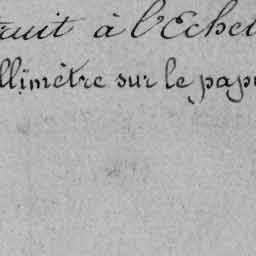 ruit à l'Echel
llimètre sur le pap